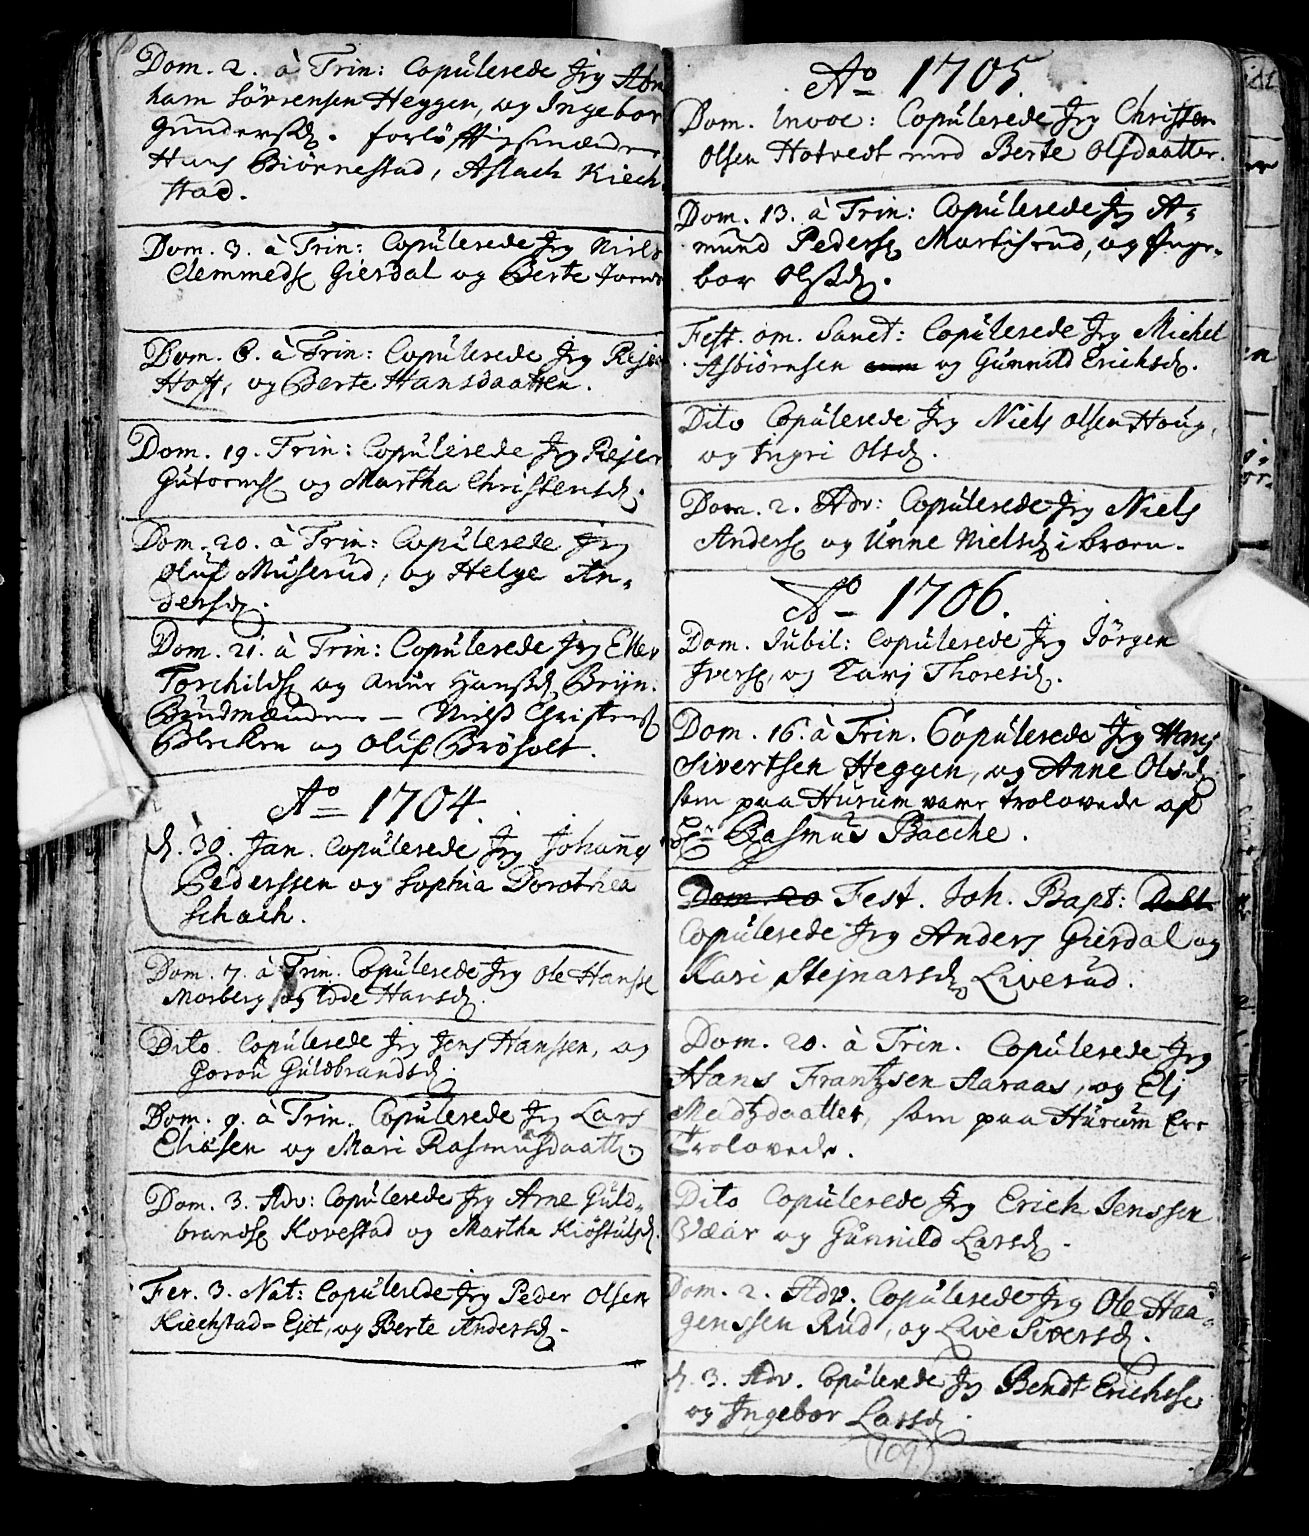 Dom. 2. à Trin: Copulerede Jeg Abra
ham Sörrensen Heggen, og Ingebor
Gundersd.
Hans Biörnestad, Aslach Kiech
stad.
Dom. 3. à Trin: Copulerede Jeg Niels
Clemmeds Gierdal og Berte
Dom. 6. à Trin: Copulerede Jeg Rejer
Hoff, og Berte Hansdaatter.
Dom. 19. Trin: Copulerede Jeg Rejer
Gutorms og Martha Christensd.
Dom. 20. à Trin: Copulerede Jeg
Oluf Muserud, og Helge An-
dersd.
Dom. 21. à Trin: Copulerede Jeg
Torchilds og Hansd Bryn.
Christens
og Oluf
Ao 1704.
d. 30. Jan. Copulerede Jeg Johann
Pederssen og Sophia Dorothea
Schach.
Dom. 7. à Trin. Copulerede Jeg Ole Hanss
Morberg og Hansd.
Dito. Copulerede Jeg Jens Hanssen, og
Goron Guldbrandsd.
Dom. 9. à Trin. Copulerede Jeg Lars
Eliasen og Mari Rasmusdaatt.
Dom. 3. Adv: Copulerede Jeg Arne Guld-
brands Kovestad og Martha Kiöstulsd.
Fer. 3. Nat: Copulerede Jeg Peder Olsen
Kiechstad-Ejet, og Berte Andersd.
Ao 1705.
Dom. Invoc: Copulerede Jeg Christen
Olsen Hotvedt med Berte Olsdaatter.
Dom. 13. à Trin: Copulerede Jeg A-
mund Peders Martisrud, og Inge-
bor Olssd.
Fest. om. Sanct: Copulerede Jeg Michel
Asbiörnsen og Gunnild Erichsd.
Dito Copulerede Jeg Niels Olsen Houg,
og Ingri Olsd.
Dom. 2. Adv: Copulerede Jeg Niels
Anders og Unne Nielsd i braen.
Ao 1706.
Dom. Jubil: Copulerede Jeg Jörgen
Ivers, og Tarj Thoresd.
Dom. 16. à Trin. Copulerede Jeg Hans
Sivertsen Heggen, og Anne Olsd.
som paa Hurum vare trolovede af
Hr Rasmus Bacche.
Dom. 20 Fest. Joh. Bapt:
Copulerede Jeg Anders Gierdal og
Kari Stejnarsd Liverud.
Dom. 20. à Trin. Copulerede Jeg
Hans Frantzsen Aaraas, og Eli
Madtzdaatter, som paa Hurum Ere
Trolovede.
Dito Copulerede Jeg Erich Jenssen
Wæar og Gunnild Larsd.
Dom. 2. Adv. Copulerede Jeg Ole Haa-
genssen Rud, og Live Siversd.
d. 3. Adv. Copulerede Jeg Bendt Erichss
og Ingebor Larsd.
(109.)